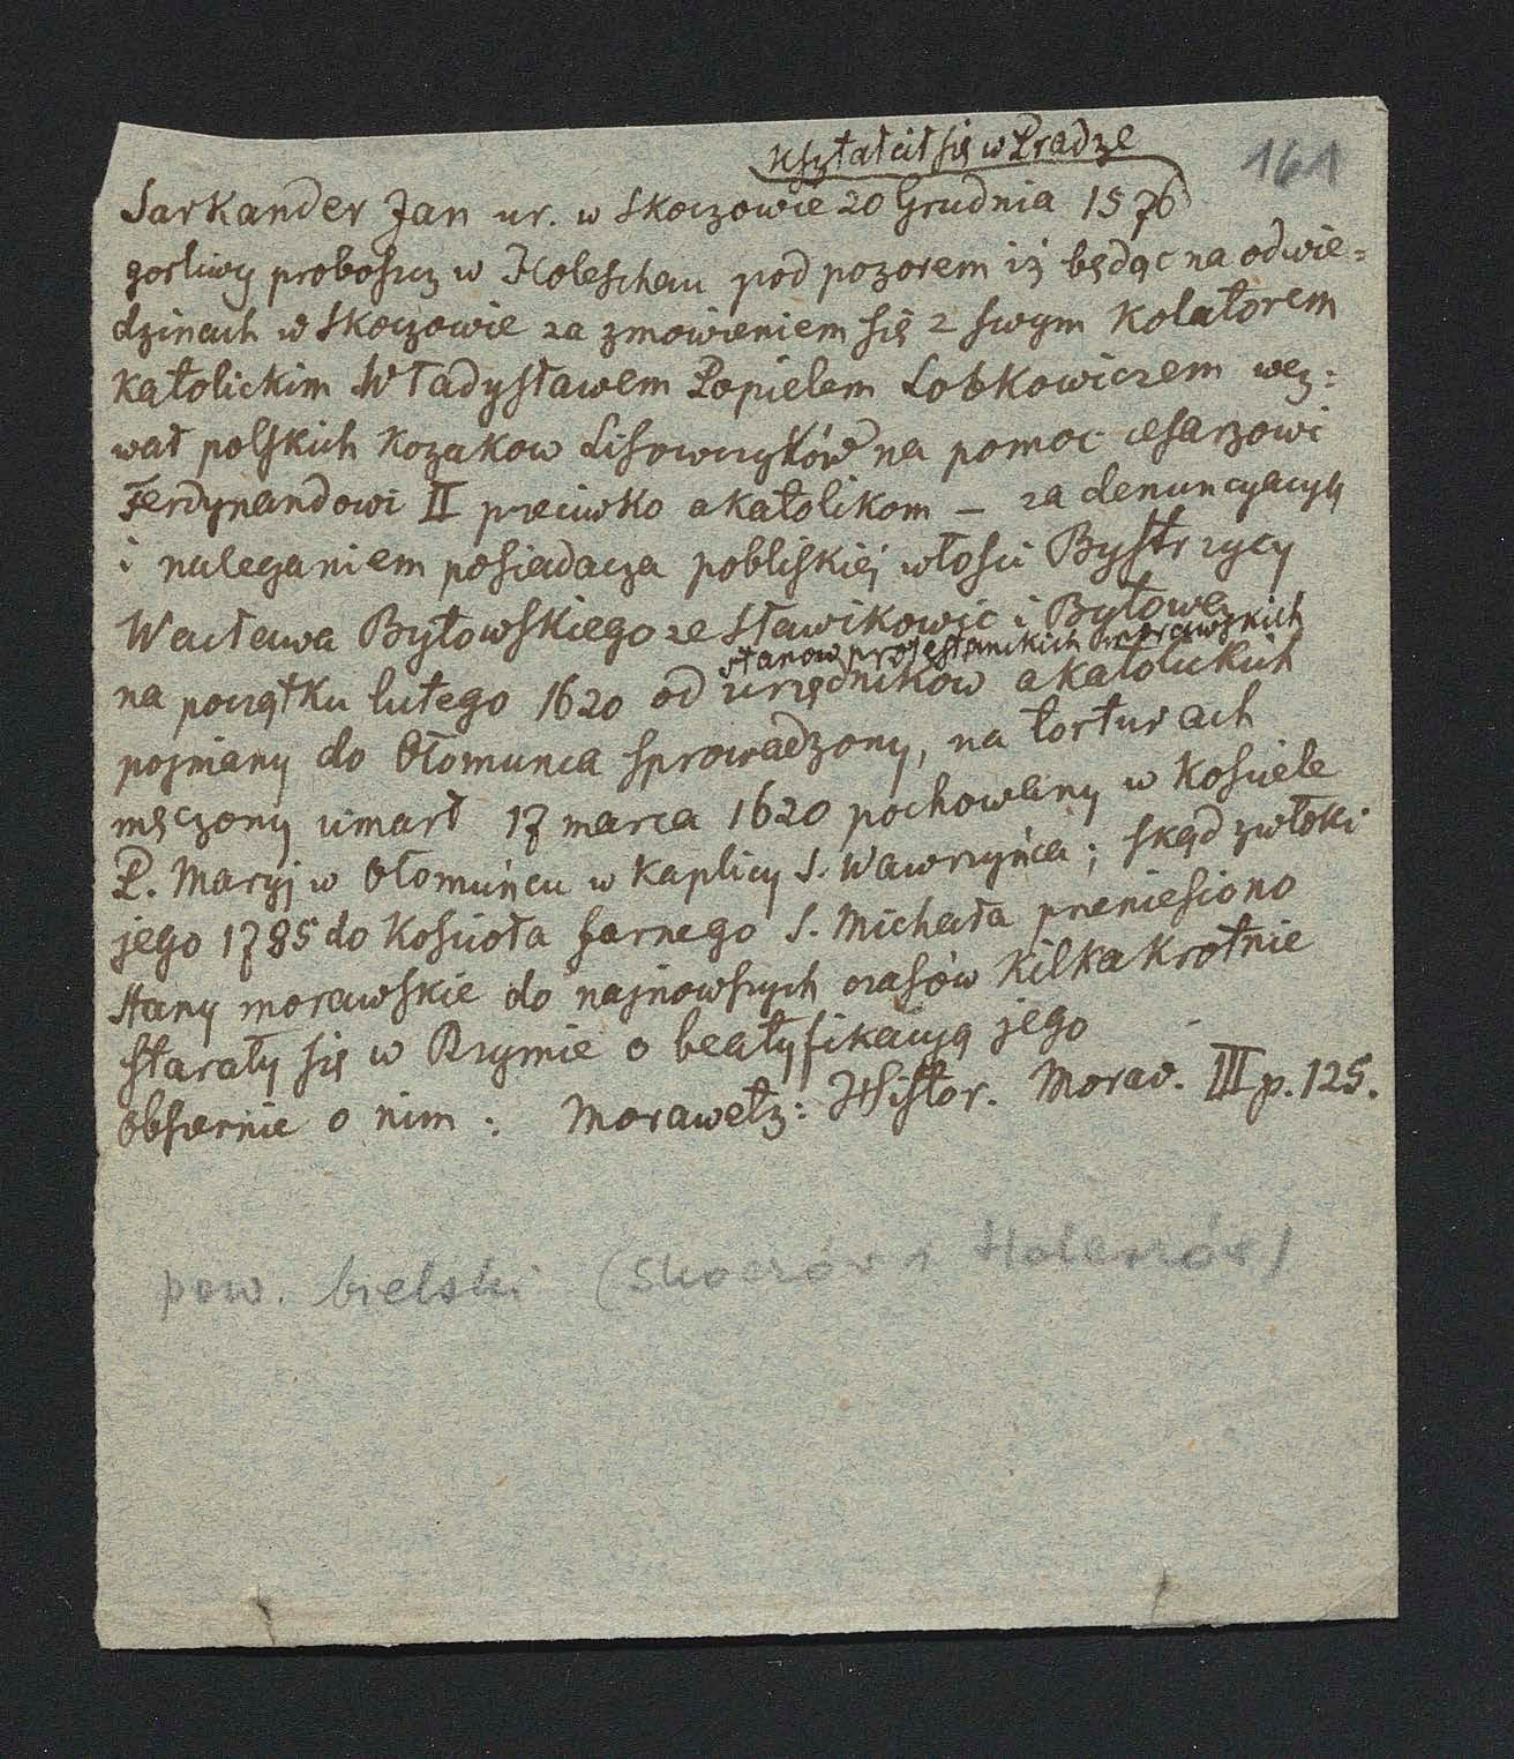 kształcił się w Pradze
161
Sarkander Jan ur. w Skoczowie 20 Grudnia 1576
gorliwy proboszcz w Holeschau pod pozorem iż będąc na odwie=
dzinach w Skoczowie za zmowieniem się z swym Kolatorem
katolickim Władysławem Popielem Lobkowiczem wez=
wał polskich kozakow Lisowczyków na pomoc cesarzowi
Ferdynandowi II przeciwko akatolikom – za denuncyacyą
i naleganiem posiadacza pobliskiéj włości Bystrzycy
Wacława Bytowskiego ze Sławikowic i Bytowa
stanow protestanckich morawskich
na początku lutego 1620 od urzędników akatolickich
pojmany do Ołomunca sprowadzony, na torturach
męczony umarł 17 marca 1620 pochowany w kościele
P. Maryj w Ołomuńcu w kaplicy S. Wawrzyńca; skąd zwłoki
jego 1785 do kościoła farnego S. Michała przeniesiono
Stany morawskie do najnowszych czasów kilkakrotnie
starały się w Rzymie o beatyfikacyą jego
obszernie o nim : Morawetz: Histor. Morav. III p. 125.
pow. bielski (Skoczów i Holeszów)